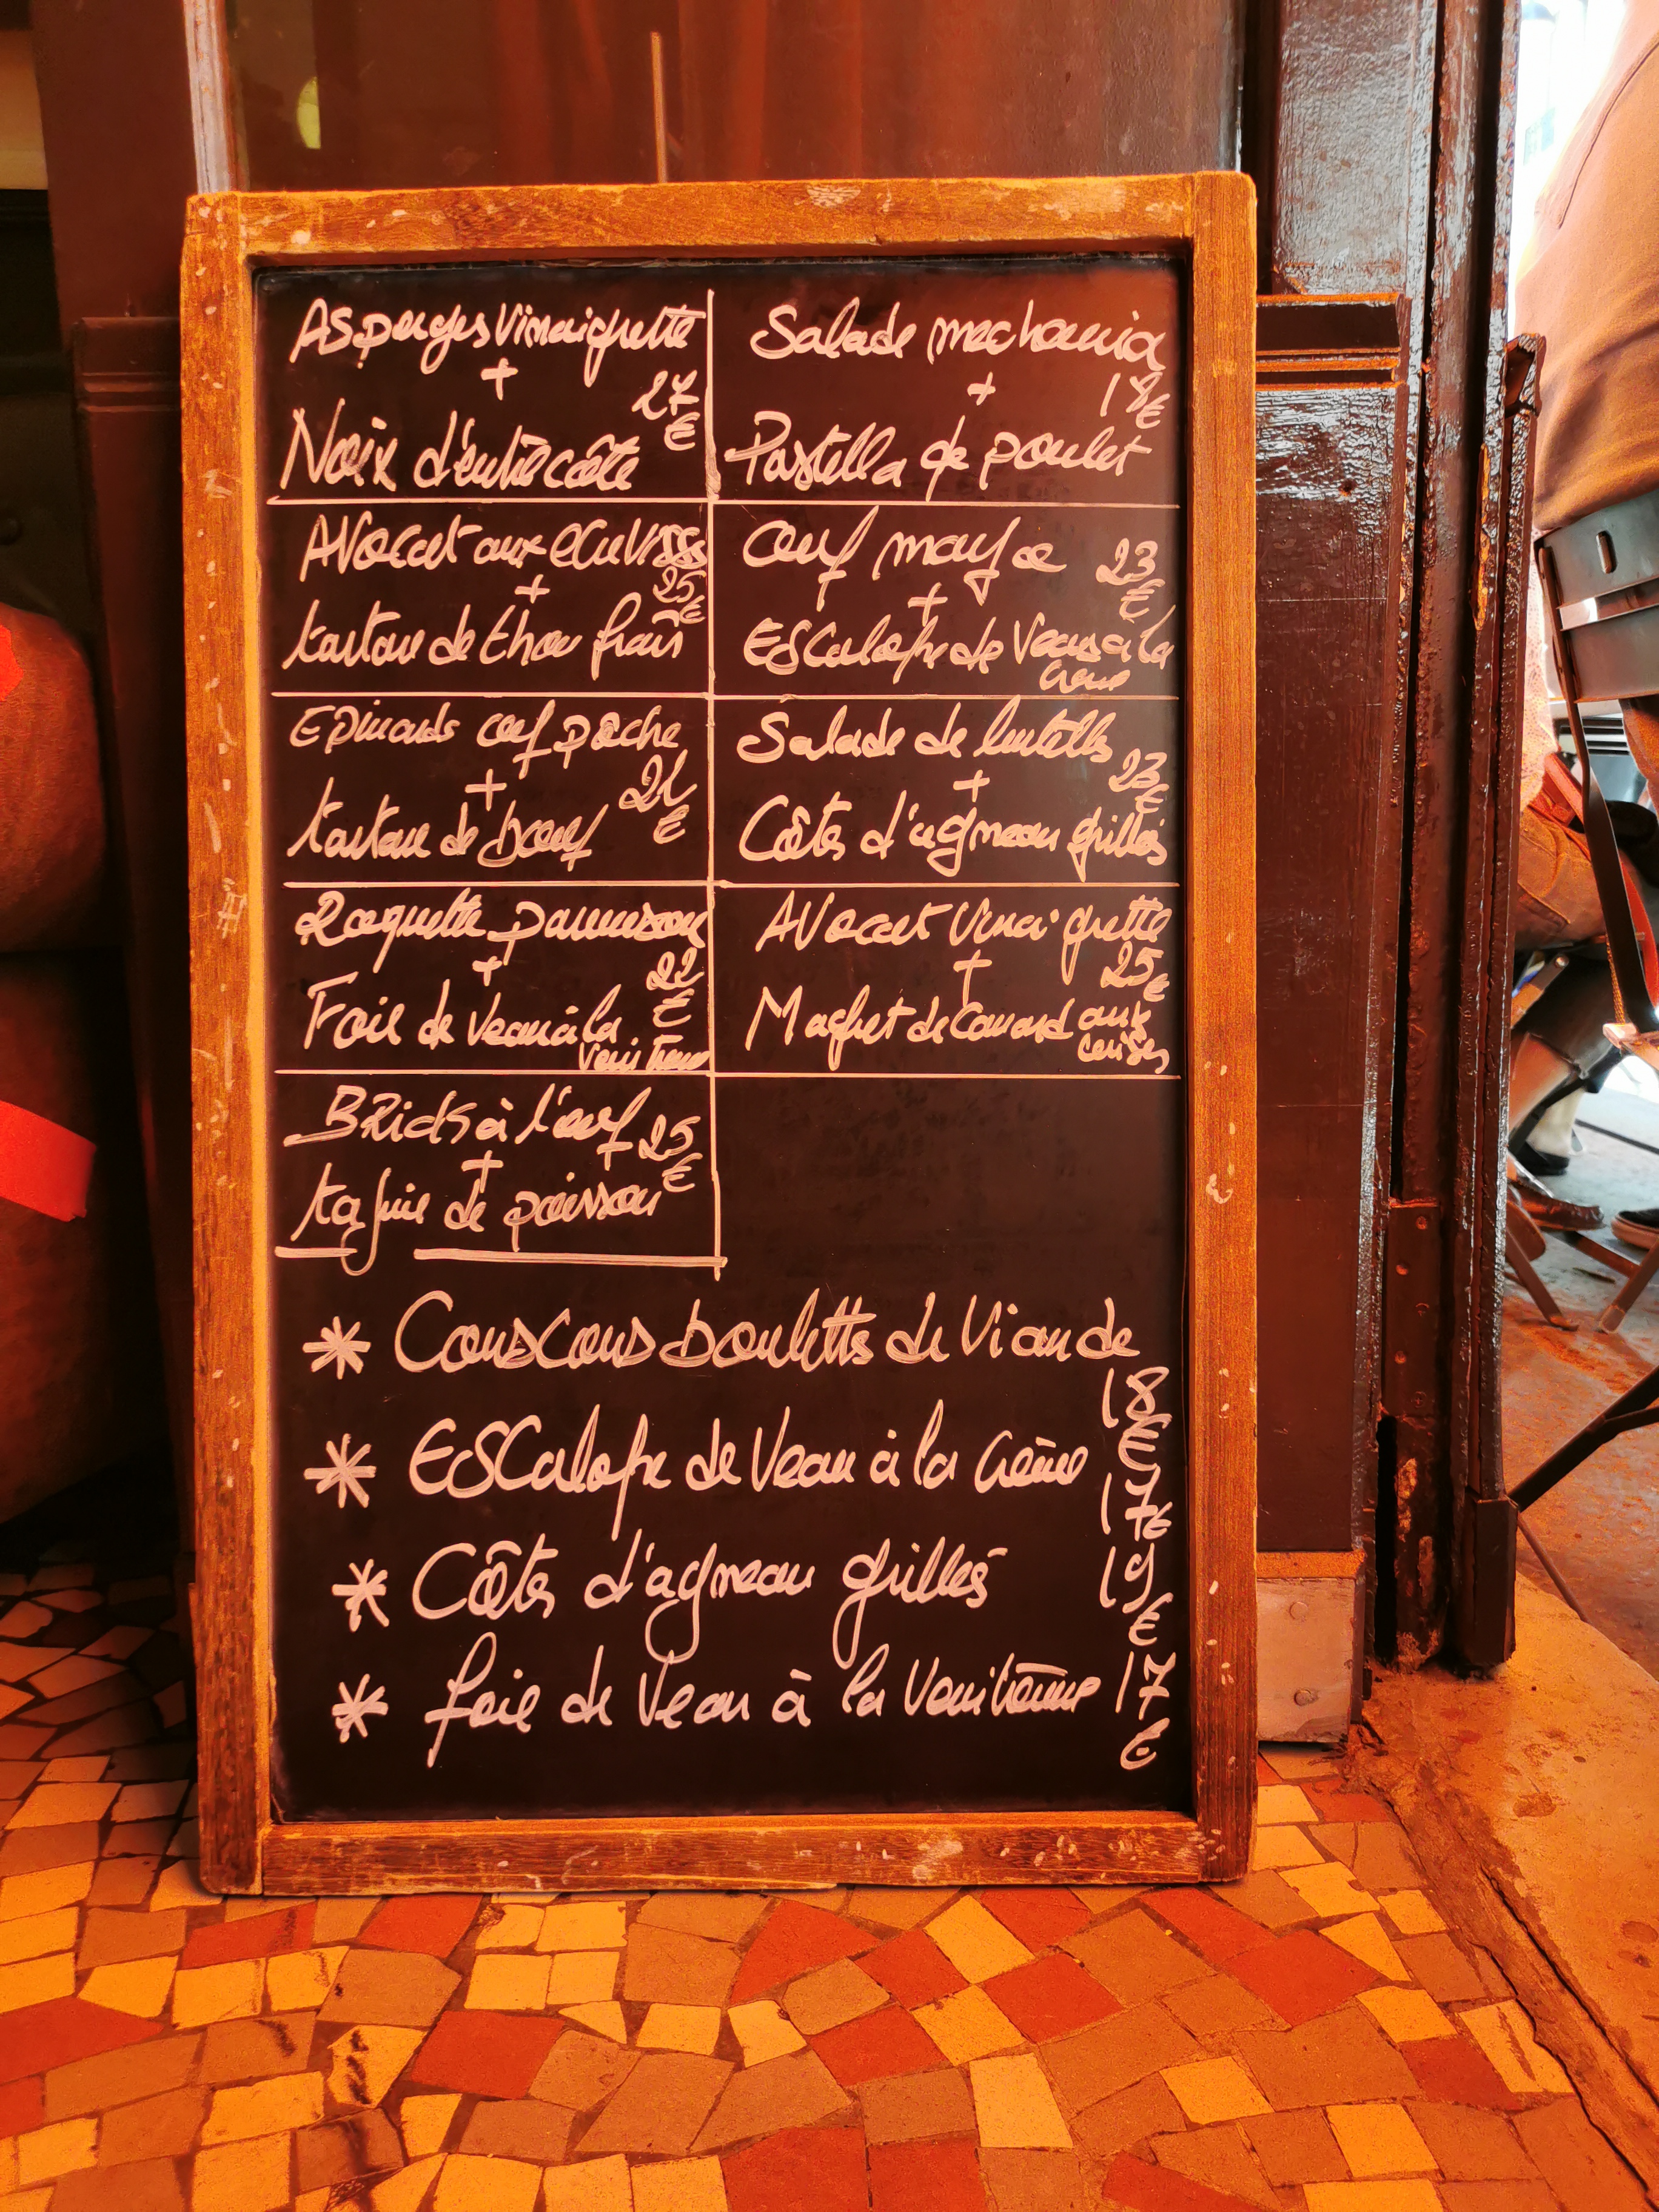 Asperges Vinaigrette
+
27 €
Noix d'entrecôte
Salade mechouia
+
18 €
Pastilla de poulet
Avocat aux ecrevisses
+
25 €
tartare de thon frais
Œuf mayo
23 €
+
Escalope de Veau à la
Crème
Epinards œuf poche
+
€
tartare de bœuf
Salade de lentilles
+
23 €
Côtes d'agneau grillés
Roquette parmesan
+
22 €
Foie de veau à la
Venitienne
Avocat Vinaigrette
+
25 €
Magret de Canard aux
cerises
Bricks à l'œuf
+
25 €
tagine de poisson
* Couscous boulettes de Viande
18 €
* Escalope de Veau à la Crème
17 €
* Côtes d'agneau grillés
19 €
* foie de Veau à la Venitienne 17
€